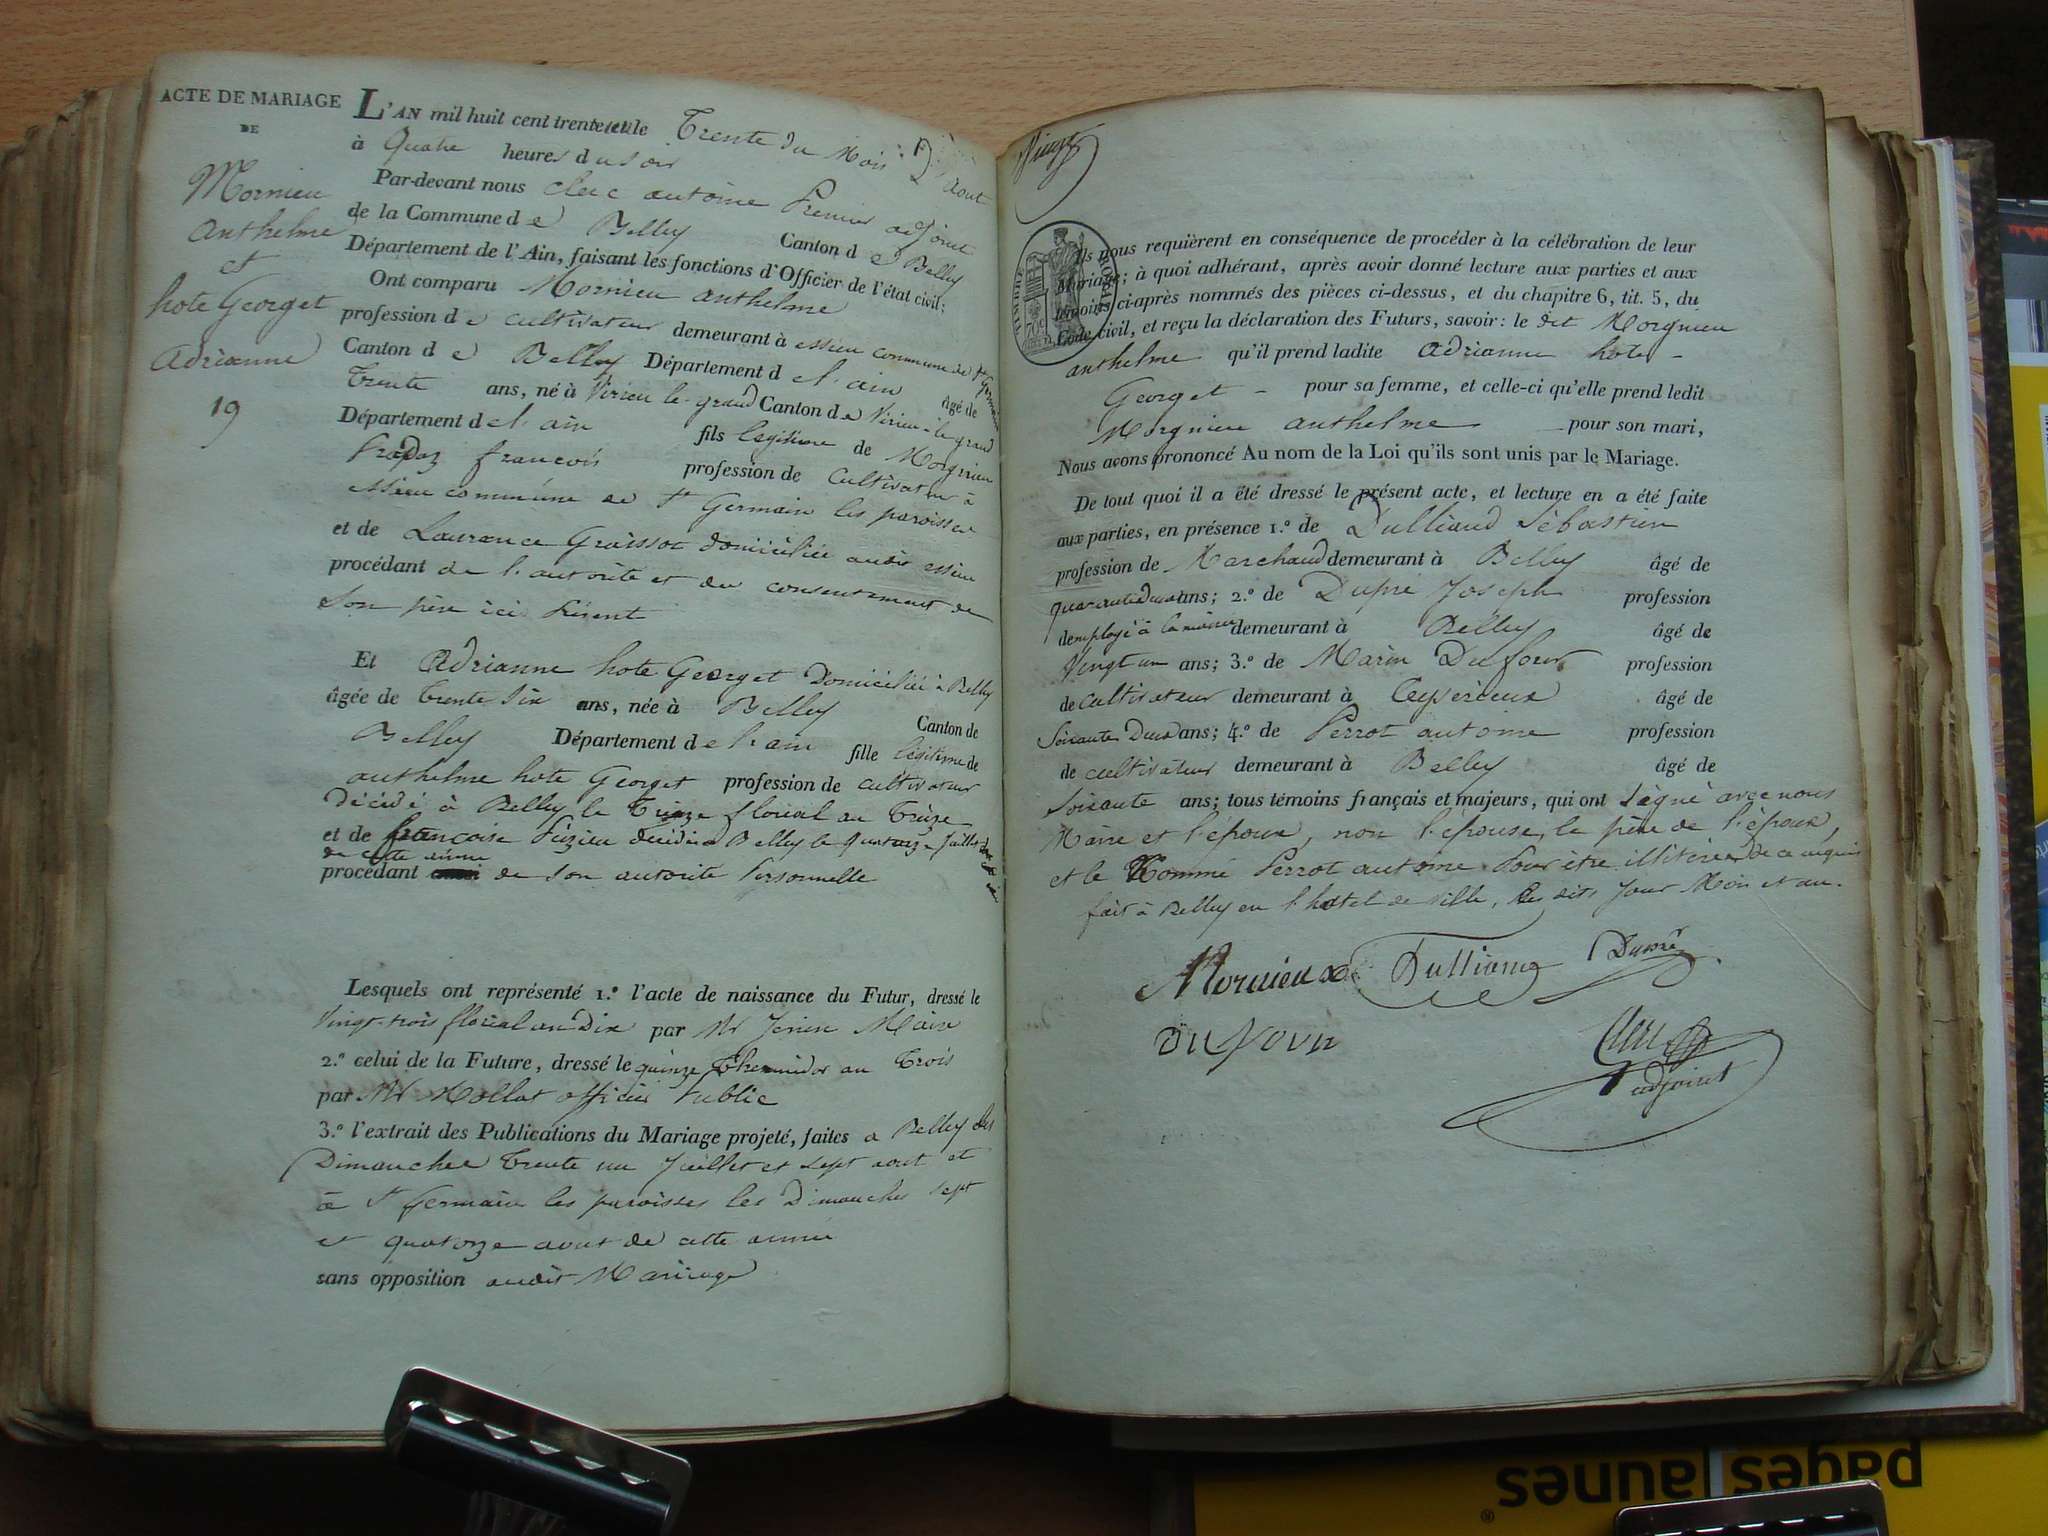 ACTE DE MARIAGE
DE
Mornieu
Anthelme
et
hote Georget
Adrianne
19
L'AN mil huit cent trente et un le Trente du Mois D'aout
à Quatre heures du soir
Par-devant nous Clerc antoine Premier adjoint
de la Commune de Belley Canton de Belley
Département de l'Ain, faisant les fonctions d'Officier de l'état civil;
Ont comparu Mornieu anthelme
profession de cultivateur demeurant à essieu commune de St Germain
Canton de Belley Département de l'ain âgé de
Trente ans, né à Virieu le grand Canton de Virieu-le grand
Département de l'ain fils legitime de Morgnieu
françois profession de Cultivateur à
essieu commune de St Germain les paroisses
et de Laurance Graissot domiciliée audit essieu
procédant de l'autorité et du consentement de
Son père ici Présent
Et Adrianne hote Georget Domiciliée à Belley
âgée de trente six ans, née à Belley Canton de
Belley Département de l'ain fille légitime de
anthelme hote Georget profession de cultivateur
Décédé à Belley le Treize floréal an Treize
et de françoise Pézieu décédée à Belley le quatorze Juillet
de cette année
procédant de son autorité Personnelle
Lesquels ont représenté 1.º l'acte de naissance du Futur, dressé le
Vingt-trois floréal an Dix par Mr Maire
2.º celui de la Future, dressé le quinze Thermidor an Trois
par Mr Mollat officier Public
3.º l'extrait des Publications du Mariage projeté, faites a Belley les
Dimanches Trente un Juillet et sept aout et
à St Germain les paroisses les Dimanches sept
et quatorze aout de cette année
sans opposition audit Mariage
Vingt
TIMBRE ROYAL
70c
Ils nous requièrent en conséquence de procéder à la célébration de leur
Mariage; à quoi adhérant, après avoir donné lecture aux parties et aux
témoins ci-après nommés des pièces ci-dessus, et du chapitre 6, tit. 5, du
Code civil, et reçu la déclaration des Futurs, savoir: le dit Morgnieu
anthelme qu'il prend ladite Adrianne hote-
Georget - pour sa femme, et celle-ci qu'elle prend ledit
Morgnieu anthelme pour son mari,
Nous avons prononcé Au nom de la Loi qu'ils sont unis par le Mariage.
De tout quoi il a été dressé le présent acte, et lecture en a été faite
aux parties, en présence 1.º de Dulliand Sébastien
profession de Marchand demeurant à Belley âgé de
quarante deux ans; 2.º de Dupré Joseph profession
d'employé à la mairie demeurant à Belley âgé de
Vingt un ans; 3.º de Marin Dufour profession
de Cultivateur demeurant à Ceyzérieux âgé de
Soixante Deux ans; 4.º de Perrot antoine profession
de cultivateur demeurant à Belley âgé de
Soixante ans; tous témoins français et majeurs, qui ont Signé avec nous
Maire et l'époux, non l'épouse, le père de l'époux,
et le Nommé Perrot antoine Pour être illitérés de ce enquis
fait à Belley en l'hotel de ville, les dits Jour Mois et an.
Mornieu Dulliand Dupré
DUfOUR Clerc
adjoint
pages jaunes